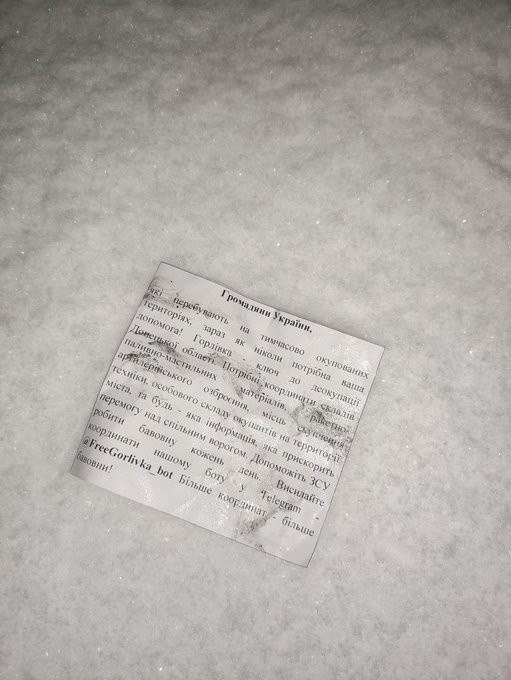 Громадяни України,
які перебувають на тимчасово окупованих
територіях, зараз як ніколи потрібна ваша
допомога! Горлівка - ключ до деокупації
Донецької області. Потрібні координати складів
паливно-мастильних матеріалів, ракетно-
артилерійського озброєння, місць скупчення
техніки, особового складу окупантів на території
міста, та будь - яка інформація, яка прискорить
перемогу над спільним ворогом. Допоможіть ЗСУ
робити бавовну кожень день. Висилайте
координати нашому боту у Telegram -
@FreeGorlivka_bot Більше координат - більше
бавовни!